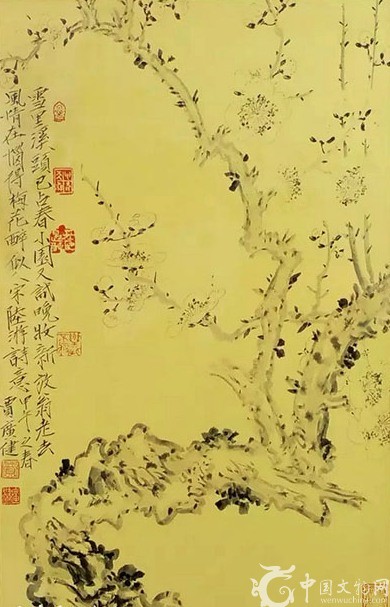 雪里溪頭已占春小園又試晚妝新放翁老去
風情在惱得梅花醉似人宋陸游詩意甲午之春
賈廣健
中国文物网
www.wenwuchina.com